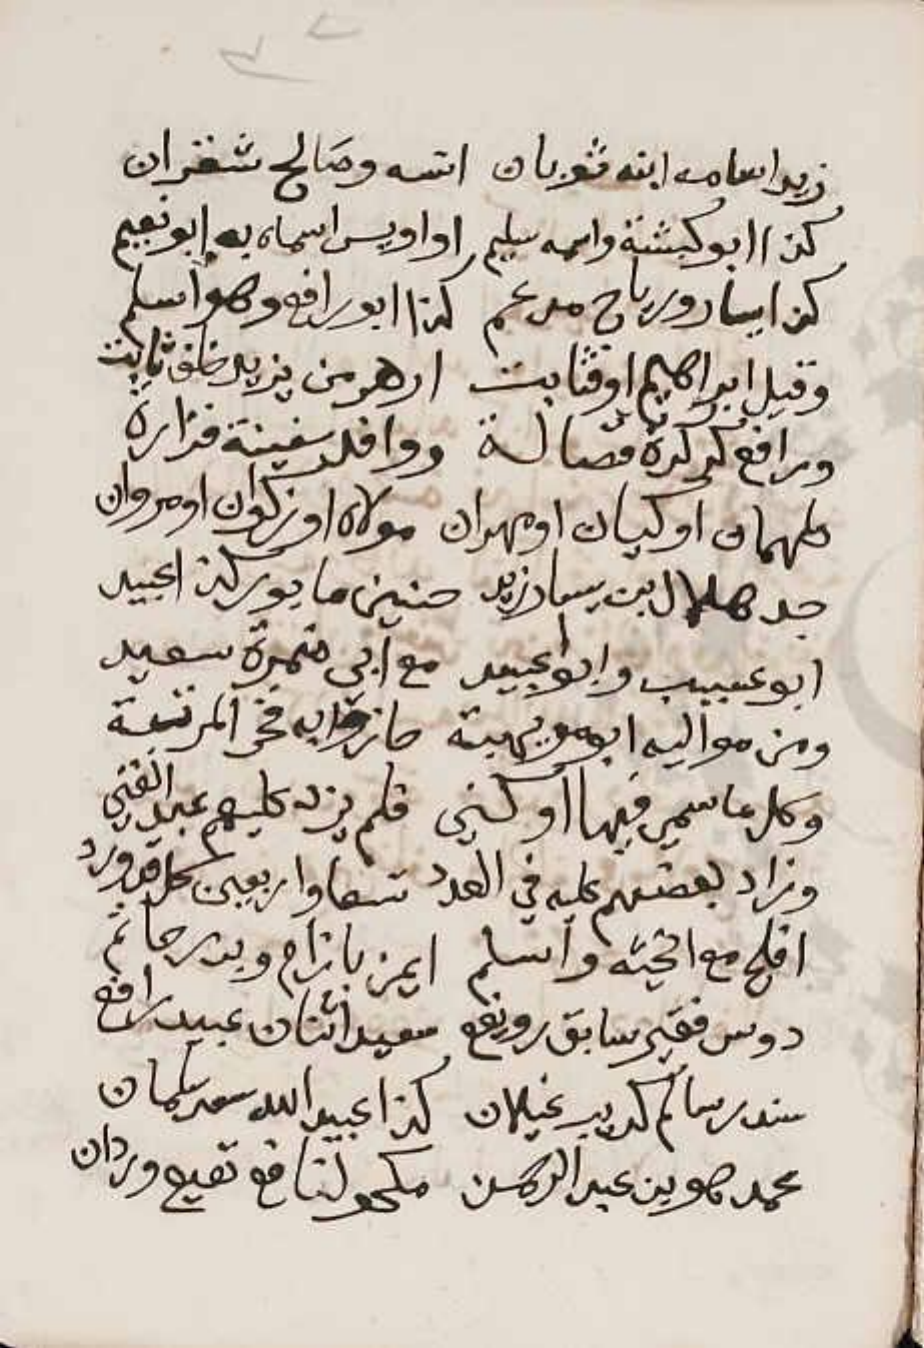 زيد اسامه ابنه ثوبان انسه وصالح شقران
كذا ابو كبشة واسمه سليم او اويس اسماه به ابو نعيم
كذا يسار ورباح مدعم كذا ابو رافع وهو اسلم
وقيل ابراهيم او ثابت ارهرمن يزيد خلف ثابت
ورافع كركرة فضالة وواقد سفينة فزارة
طهمان او كيان او مهران مولاه او زكوان او مروان
جد هلال بن يسار زيد حنين مابور كذا عبيد
ابو عسيب وابو عبيد مع ابي ضمرة سعيد
ومن مواليه ابو مويهبة حاز به فخر المرتبة
وكل ما سمي فيها او كني فلم يزد عليهم عبد الغني
وزاد بعضهم عليه في العدد تسعا واربعين كل قد ورد
افلح مع انجشه واسلم ايمن باذام وبدر حاتم
دوس قفير سابق رويفع سعيد اثنان عبيد رافع
سندر سالم كريب غيلان كذا عبيد الله سعد سلمان
محمد عبد الرحمن مكحول نافع نفيع وردان